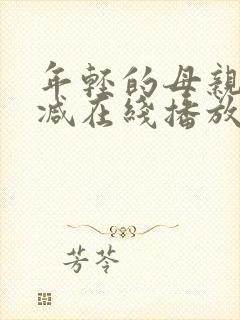 年轻的母親
减在綫播放
芳苓